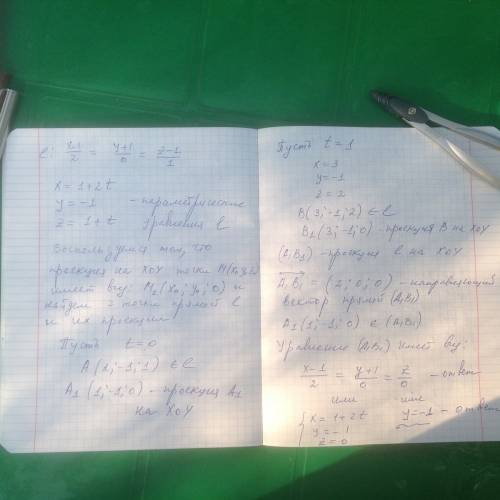 l: x-1/2 = y+1/0 = z-1/1
x = 1+2t
y = -1 - параметрические
z = 1+t уравнения l
Воспользуемся тем, что
проекция на XOY точки M(x₀;y₀;z₀)
имеет вид: M₁(x₀; y₀; 0) и
найдем 2 точки прямой l
и их проекции
Пусть t=0
A(1;-1;1) ∈ l
A₁(1;-1;0) - проекция A₁
на XOY
Пусть t=1
x=3
y=-1
z=2
B(3;-1;2) ∈ l
B₁(3;-1;0) - проекция B на XOY
(A₁B₁) - проекция l на XOY
A₁B₁ = (2;0;0) - направляющий
вектор прямой (A₁B₁)
A₁(1;-1;0) ∈ (A₁B₁)
Уравнение (A₁B₁) имеет вид:
x-1/2 = y+1/0 = z/0 - ответ
или или
{ x=1+2t y=-1 - ответ
y=-1
z=0